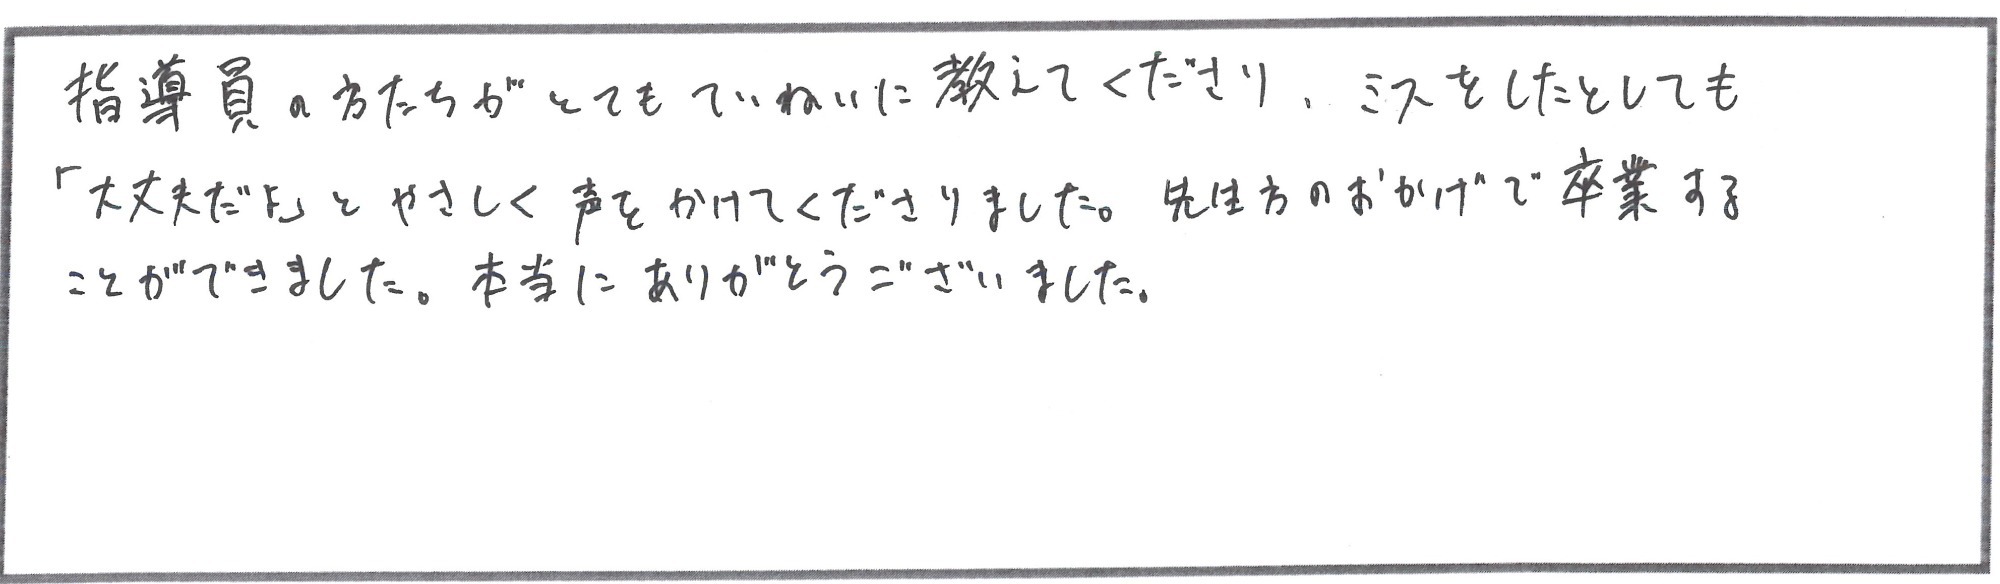 指導員の方たちがとてもていねいに教えてくださり、ミスをしたとしても
「大丈夫だよ」とやさしく声をかけてくださりました。先生方のおかげで卒業する
ことができました。本当にありがとうございました。